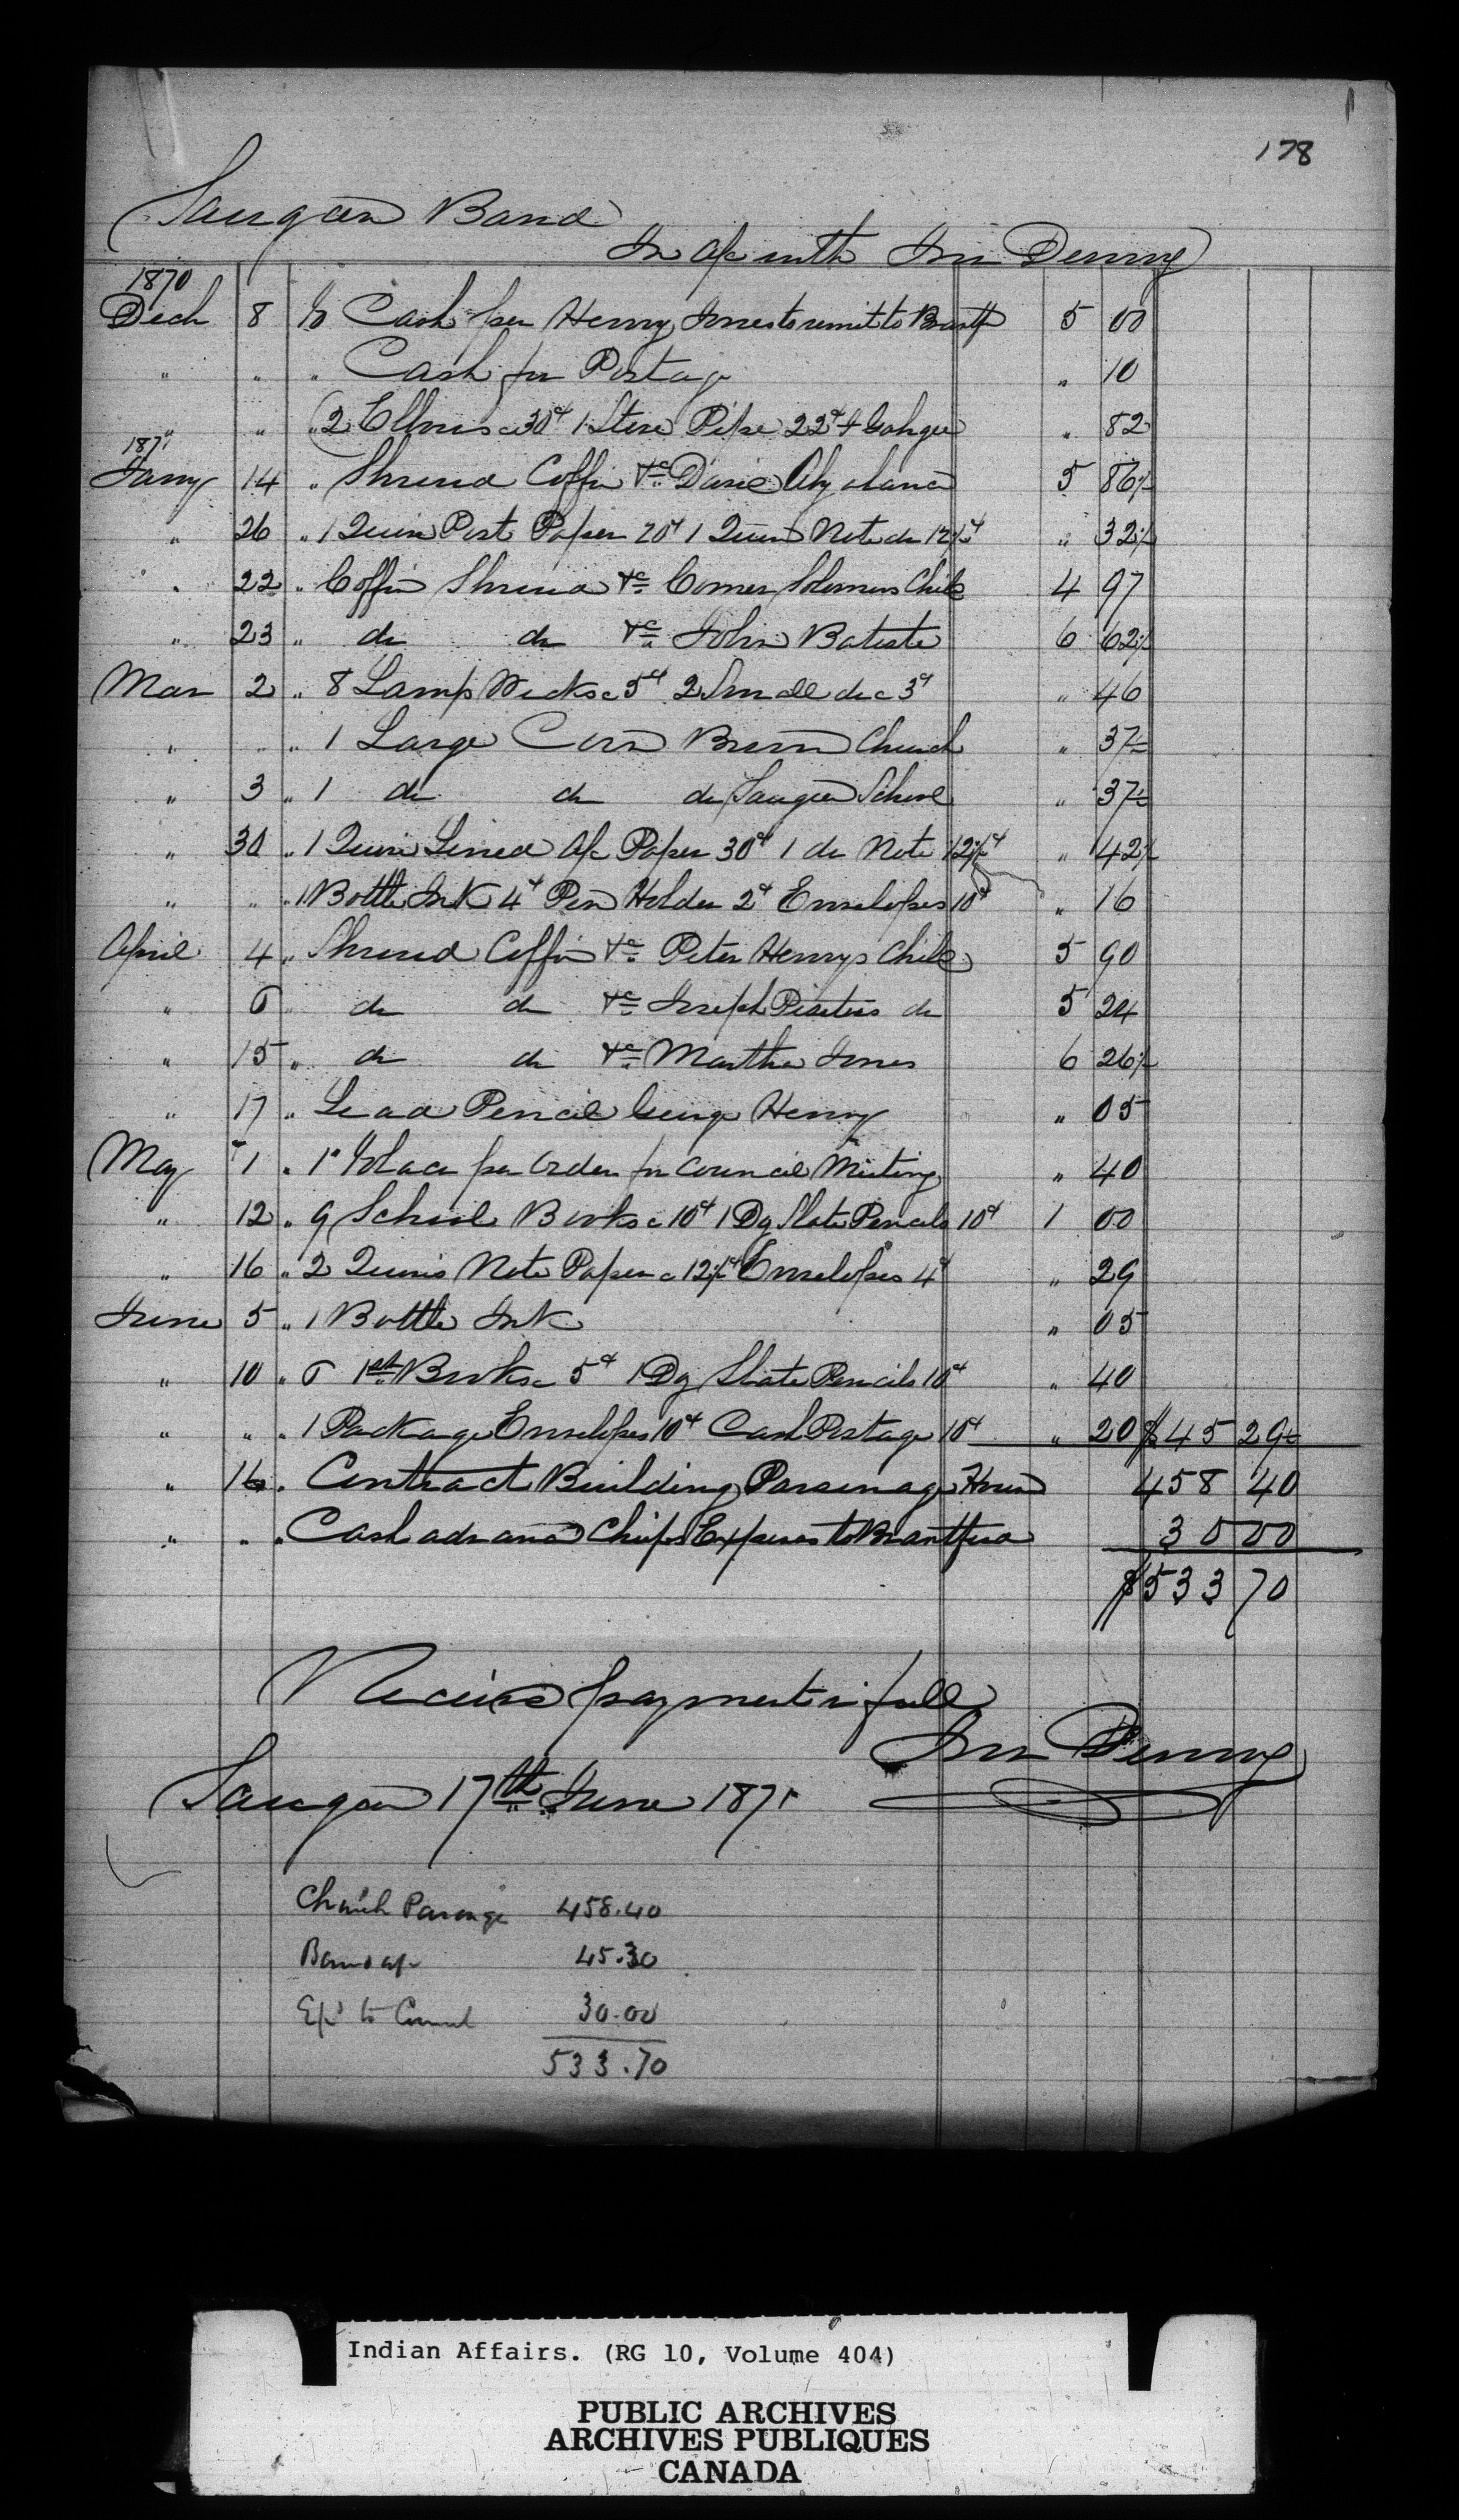 178
Saugeen Band
In a/c with Jno Denny
1870
Decb 8 To Cash per Henry Jones to remit to Brantfd 5 00
" " " Cash for Postage " 10
" " " 2 Elbows @ 30cts 1 Stove Pipe 22cts " 82
1871
Jany 14 " Shroud Coffin &c David 5 86½
" 26 " 1 Quire Post Paper 20cts 1 Quire Note do 12½cts " 32½
" 22 " Coffin Shroud &c Comer Solomons Child 4 97
" 23 " do do &c John Batiste 6 62½
Mar 2 " 8 Lamp Wicks @ 5cts 2 Small do @ 3cts " 46
" " " 1 Large Corn Broom Church " 37½
" 3 " 1 do do do Saugeen School " 37½
" 30 " 1 Quire Lined a/c Paper 30cts 1 do Note 12½cts " 42½
" " " 1 Bottle Ink 4cts Pen Holder 2cts Envelopes 10cts " 16
April 4 " Shroud Coffin &c Peter Henrys Child 5 90
" 6 " do do &c Joseph do 5 24
" 15 " do do &c Martha Jones 6 26½
" 17 " Lead Pencil George Henry " 05
May 1 " 1 lb Tobacco per Order for Council Meeting " 40
" 12 " 9 School Books @ 10cts 1 Dz Slate Pencils 10cts 1 00
" 16 " 2 Quires Note Paper @ 12½cts Envelopes 4cts " 29
June 5 " 1 Bottle Ink " 05
" 10 " 6 1st Books @ 5cts 1 Dz Slate Pencils 10cts " 40
" " " 1 Package Envelopes 10cts Cash Postage 10cts " 20 $45 29½
" 16 " Contract Building Parsonage House 458 40
" " " Cash advance Chiefs Expenses to Brantford 30 00
$533 70
Received payment in full
Jno Denny
Saugeen 17th June 1871
Church Parsonage 458.40
Band a/c 45.30
Exp to Council 30.00
533.70
Indian Affairs. (RG 10, Volume 404)
PUBLIC ARCHIVES
ARCHIVES PUBLIQUES
CANADA